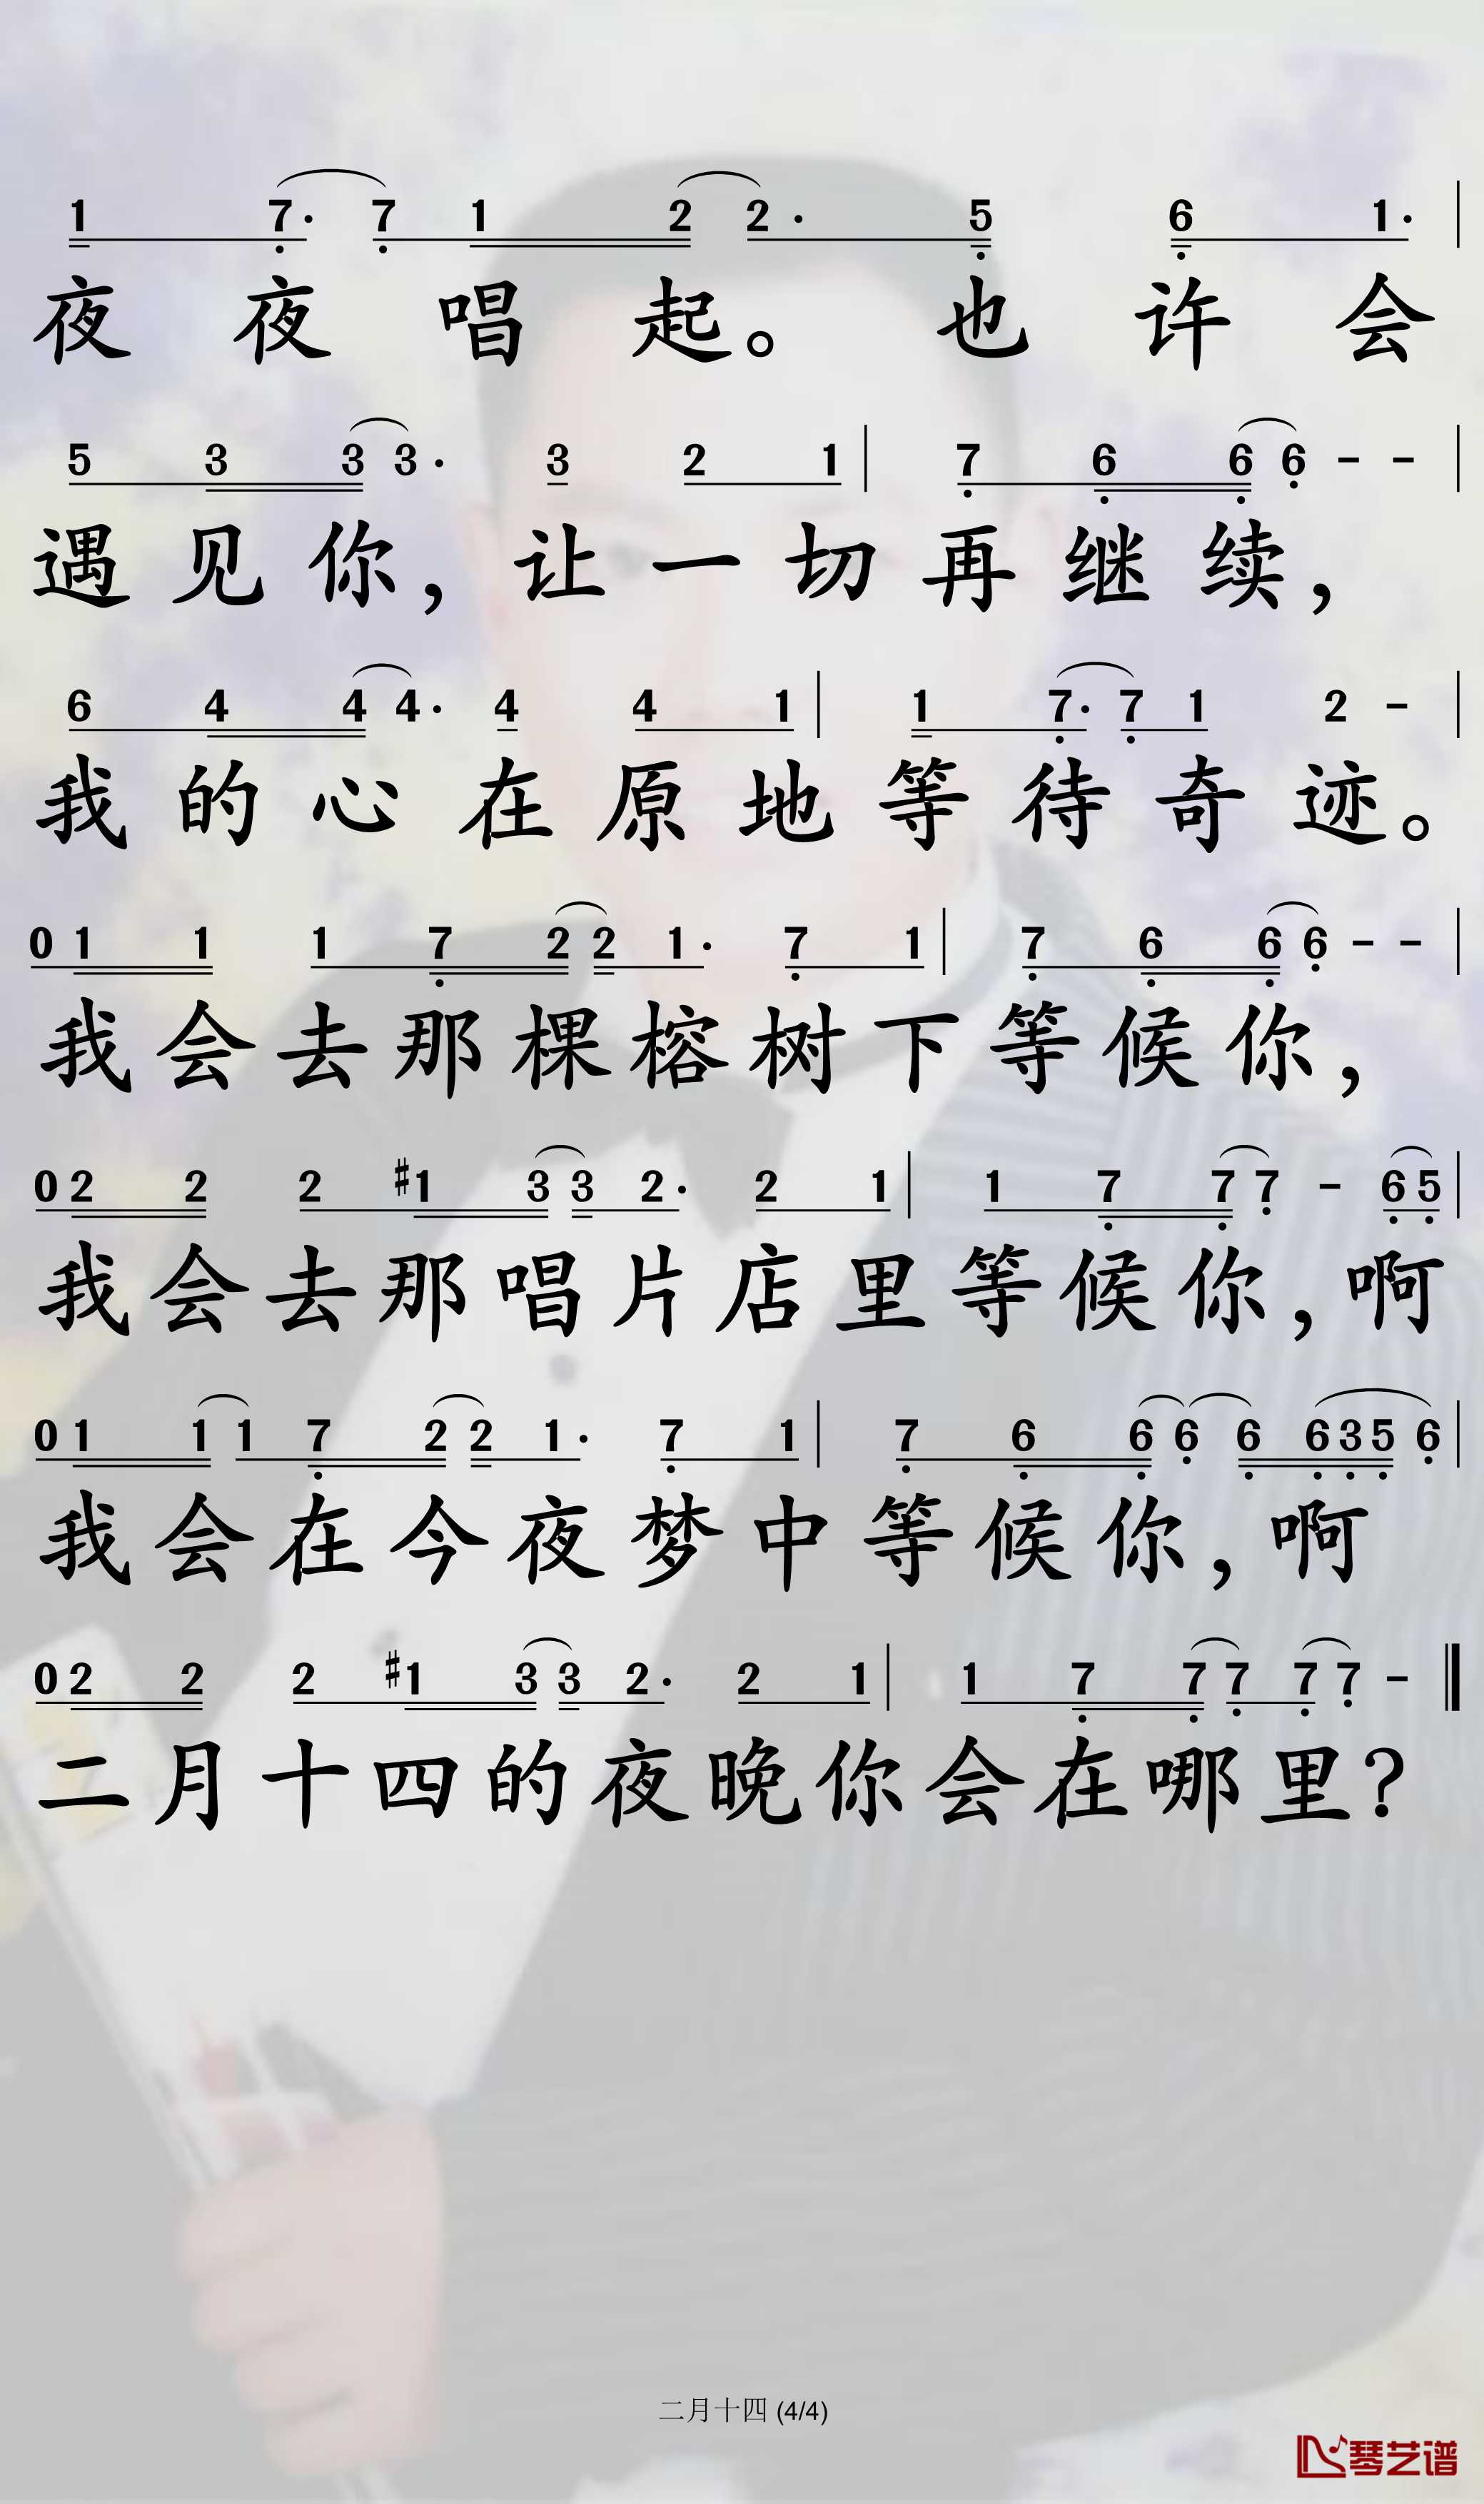 1 7· 7 1 2 2· 5 6 1· |
夜夜唱起。也许会
5 3 3 3· 3 2 1 | 7 6 6 6 - - |
遇见你，让一切再继续，
6 4 4 4· 4 4 1 | 1 7· 7 1 2 - |
我的心在原地等待奇迹。
0 1 1 1 7 2 2 1· 7 1 | 7 6 6 6 - - |
我会去那棵榕树下等候你，
0 2 2 2 #1 3 3 2· 2 1 | 1 7 7 7 - 6 5 |
我会去那唱片店里等候你，啊
0 1 1 1 7 2 2 1· 7 1 | 7 6 6 6 6 6 3 5 6 |
我会在今夜梦中等候你，啊
0 2 2 2 #1 3 3 2· 2 1 | 1 7 7 7 7 7 - ‖
二月十四的夜晚你会在哪里？
二月十四 (4/4)
琴艺谱